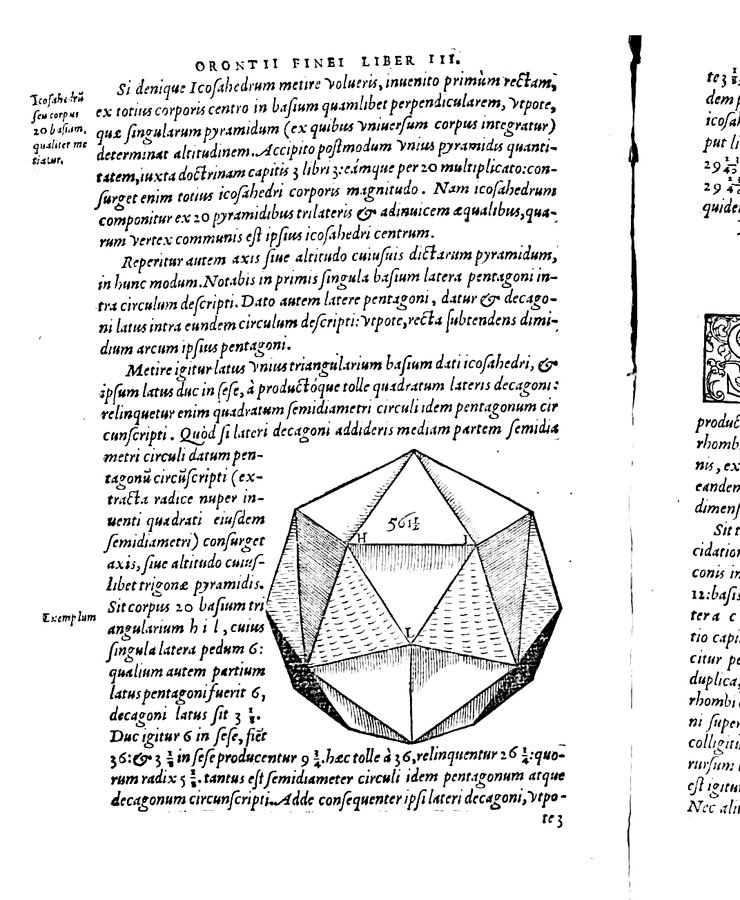 ORONTII FINEI LIBER III.
Si denique Icoſahedrum metire volueris, inuenito primùm rectam,
ex totius corporis centro in baſium quamlibet perpendicularem, vtpote,
quæ ſingularum pyramidum (ex quibus vniuerſum corpus integratur)
determinat altitudinem. Accipito poſtmodum vnius pyramidis quanti-
tatem, iuxta doctrinam capitis 3 libri 3: eámque per 20 multiplicato: con-
ſurget enim totius icoſahedri corporis magnitudo. Nam icoſahedrum
componitur ex 20 pyramidibus trilateris & adinuicem æqualibus, qua-
rum vertex communis eſt ipſius icoſahedri centrum.
Icoſahedrū
ſeu corpus
20 baſium,
qualiter me
tiatur.
Reperitur autem axis ſiue altitudo cuiuſuis dictarum pyramidum,
in hunc modum. Notabis in primis ſingula baſium latera pentagoni in-
tra circulum deſcripti. Dato autem latere pentagoni, datur & decago-
ni latus intra eundem circulum deſcripti: vtpote, recta ſubtendens dimi-
dium arcum ipſius pentagoni.
Metire igitur latus vnius triangularium baſium dati icoſahedri, &
ipſum latus duc in ſeſe, à productóque tolle quadratum lateris decagoni:
relinquetur enim quadratum ſemidiametri circuli idem pentagonum cir
cunſcripti. Quòd ſi lateri decagoni addideris mediam partem ſemidia
metri circuli datum pen-
tagonū circūſcripti (ex-
tracta radice nuper in-
uenti quadrati eiuſdem
ſemidiametri) conſurget
axis, ſiue altitudo cuiuſ-
libet trigonæ pyramidis.
Sit corpus 20 baſium tri
angularium h i l, cuius
ſingula latera pedum 6:
qualium autem partium
latus pentagoni fuerit 6,
decagoni latus ſit 3 1/8.
Duc igitur 6 in ſeſe, fiēt
Exemplum
561 1/2
H
I
L
36: & 3 1/8 in ſeſe producentur 9 3/4. hæc tolle à 36, relinquentur 26 1/4: quo-
rum radix 5 1/8. tantus eſt ſemidiameter circuli idem pentagonum atque
decagonum circunſcripti. Adde conſequenter ipſi lateri decagoni, vtpo-
te 3
te 3
dem p
icoſa
put li
29
29
quiden
product
rhomb
nis, ex
eandem
dimenſ
Sit t
cidation
conis in
12: baſis
tera c
tio capi
citur pe
duplica,
rhombi
ni ſuper
colligiti
rurſum
eſt igitu
Nec ali